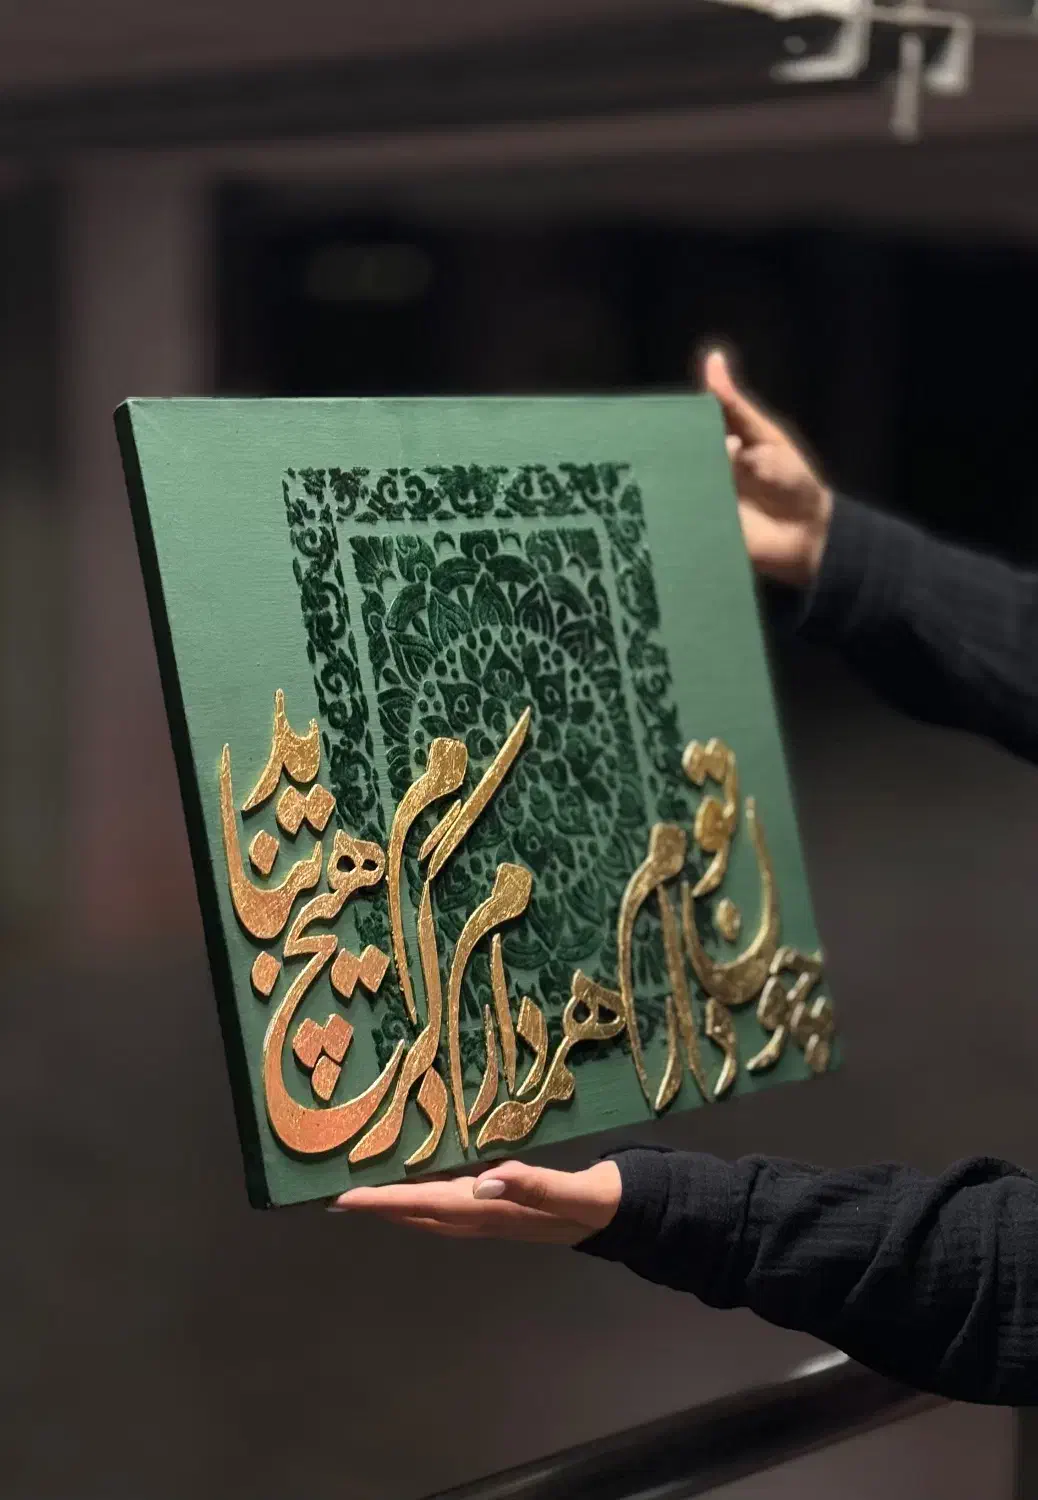 چون تو را دارم همه دارم دگرم هیچ نباید